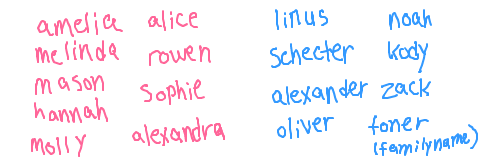 amelia alice
melinda rowen
mason sophie
hannah
molly alexandra
linus noah
schecter kody
alexander zack
oliver foner
(familyname)